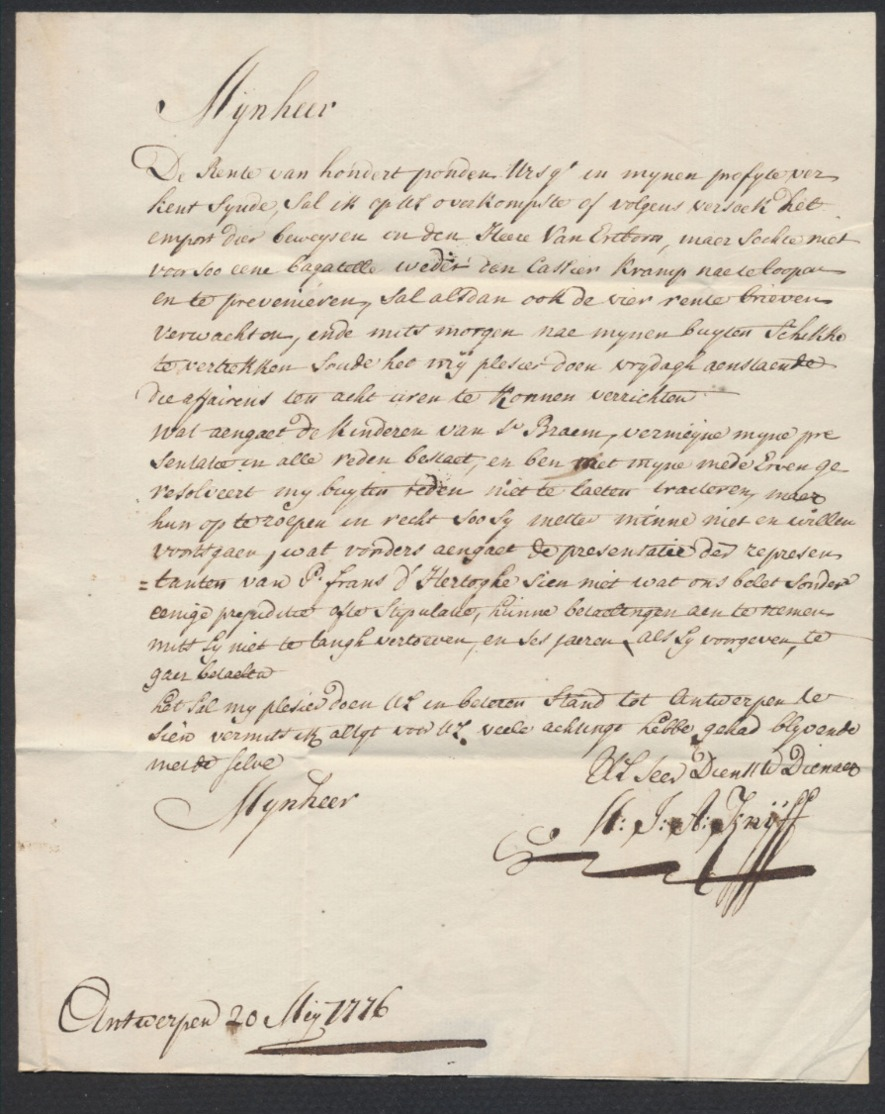 Mijnheer
De Rente van hondert ponden in mynen profyte ver
kent synde, sal ik op UL overkompste of volgens versoek het
emport dier bewysen en den Heere Van Ertborn, maer sochte niet
voor soo eene bagatelle weder den Cassier Kramp nae te loopen
en te prevenieren, sal alsdan ook de vier rente brieven
verwachten, ende mits morgen nae mynen buyten Schikke
te vertrekken soude het mij plesier doen vrydagh aenstaende
die affairens ten acht uren te konnen verrichten
Wat aengaet de Kinderen van Sr Braem, vermeyne myne pre
sentatie in alle reden bestaet, en ben met myne mede Erven ge
resolveert my buyten reden niet te laeten tracteren, maer
hun op te roepen in recht soo sy mette minne niet en willen
voortsgaen, wat vorders aengaet de presentatie der represen
=tanten van Sr frans d'Hertoghe sien niet wat ons belet sonder
eenige prejuditie ofte Stipulatie, hunne betaelingen aen te nemen
mits sy niet te langh vertoeven, en ses jaeren, als sy voorgeven, te
gaer betaelen
het sal my plesier doen UL in beteren Stand tot Antwerpen te
sien vermits ik altyt voor UL veele achtinge hebbe gehad blyvende
met de selve
UL seer Dienstw Dienaer
Mynheer
J: A: Knijff
Antwerpen 20 Mey 1776